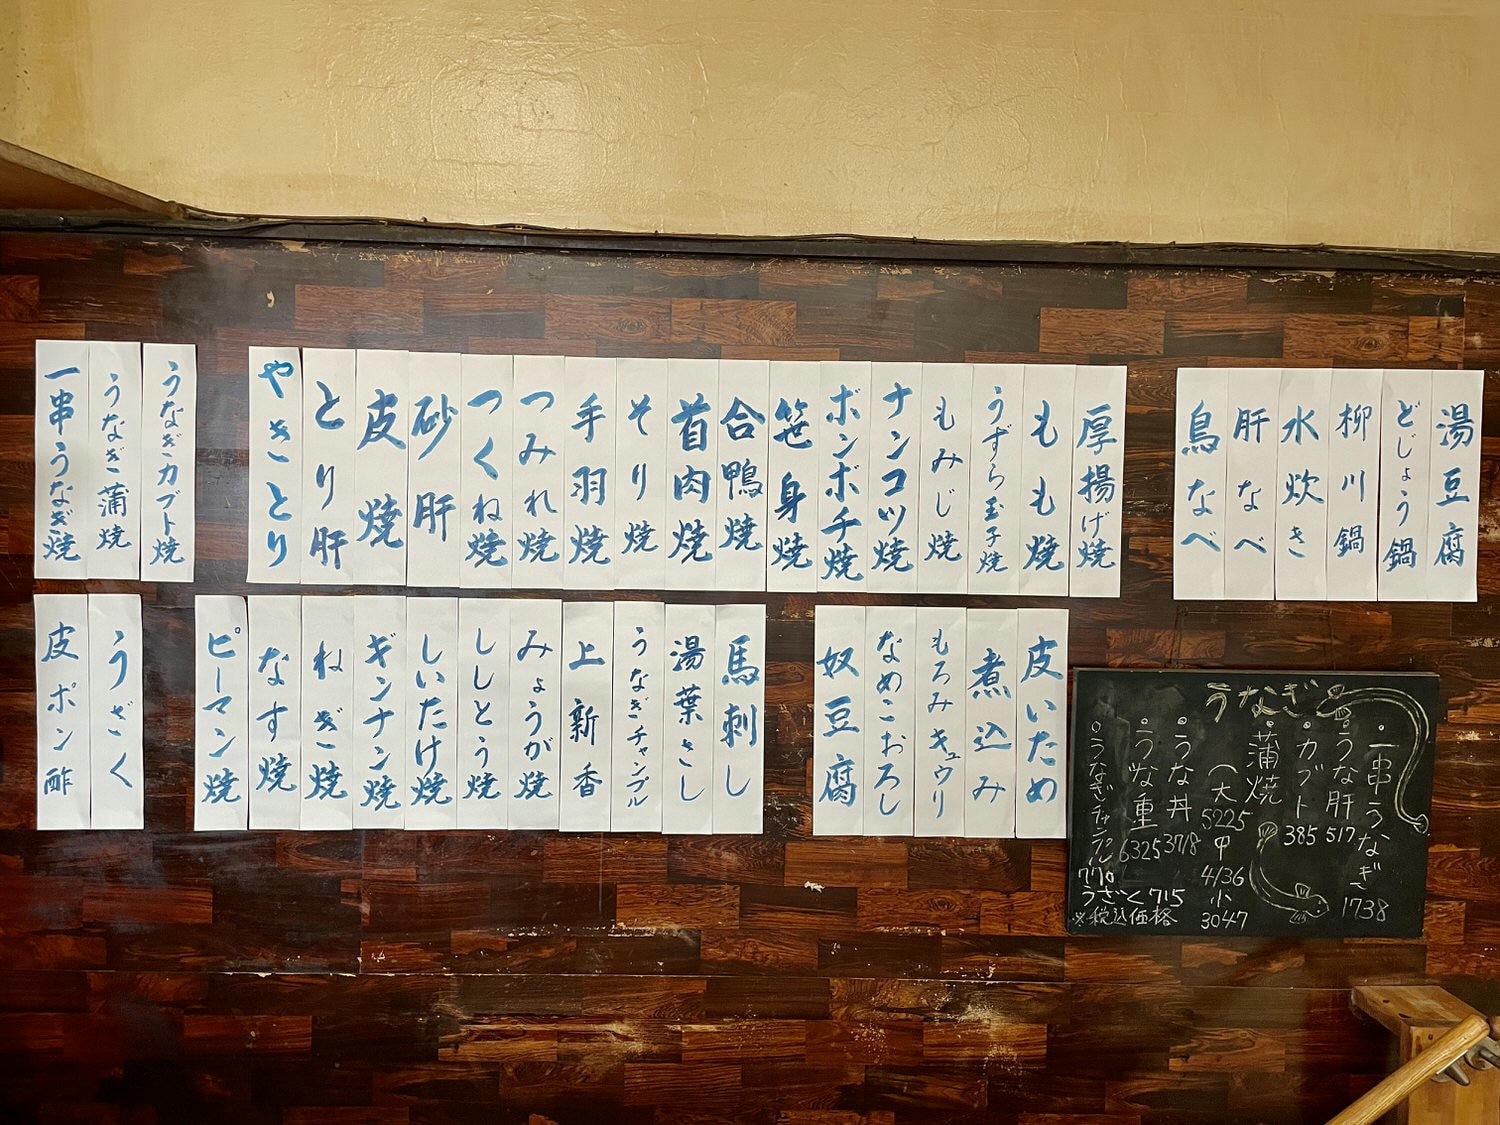 湯豆腐
どじょう鍋
柳川鍋
水炊き
肝なべ
鳥なべ
厚揚げ焼
もも焼
うずら玉子焼
もみじ焼
ナンコツ焼
ボンボチ焼
笹身焼
合鴨焼
首肉焼
そり焼
手羽焼
つみれ焼
つくね焼
砂肝
皮焼
とり肝
やきとり
うなぎカブト焼
うなぎ蒲焼
一串うなぎ焼
皮いため
煮込み
もろみキュウリ
なめこおろし
奴豆腐
馬刺し
湯葉さし
うなぎチャンプル
上新香
みょうが焼
ししとう焼
しいたけ焼
ギンナン焼
ねぎ焼
なす焼
ピーマン焼
うざく
皮ポン酢
うなぎ
・一串うなぎ 1738
・うな肝 517
・カブト 385
・蒲焼
(大 5225
中 4136
小 3047
・うな丼 3718
・うな重 6325
・うなぎチャンプル 770
うざく 715
※税込価格